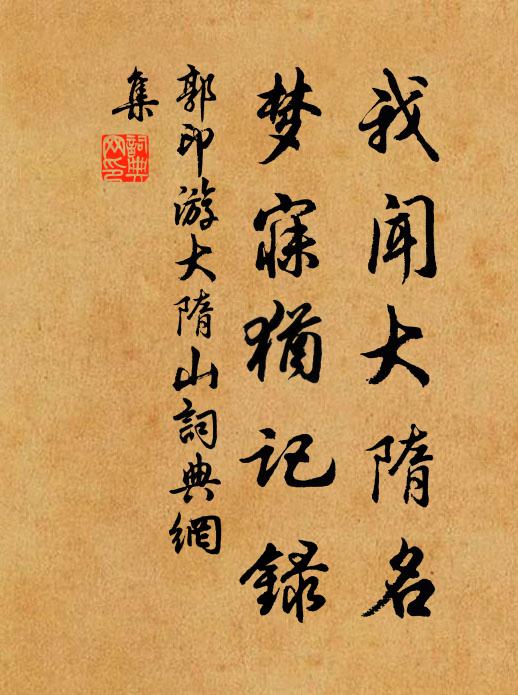 我闻大隋名
梦寐犹记录
郭印游大隋山词典網
集
詞典
网印